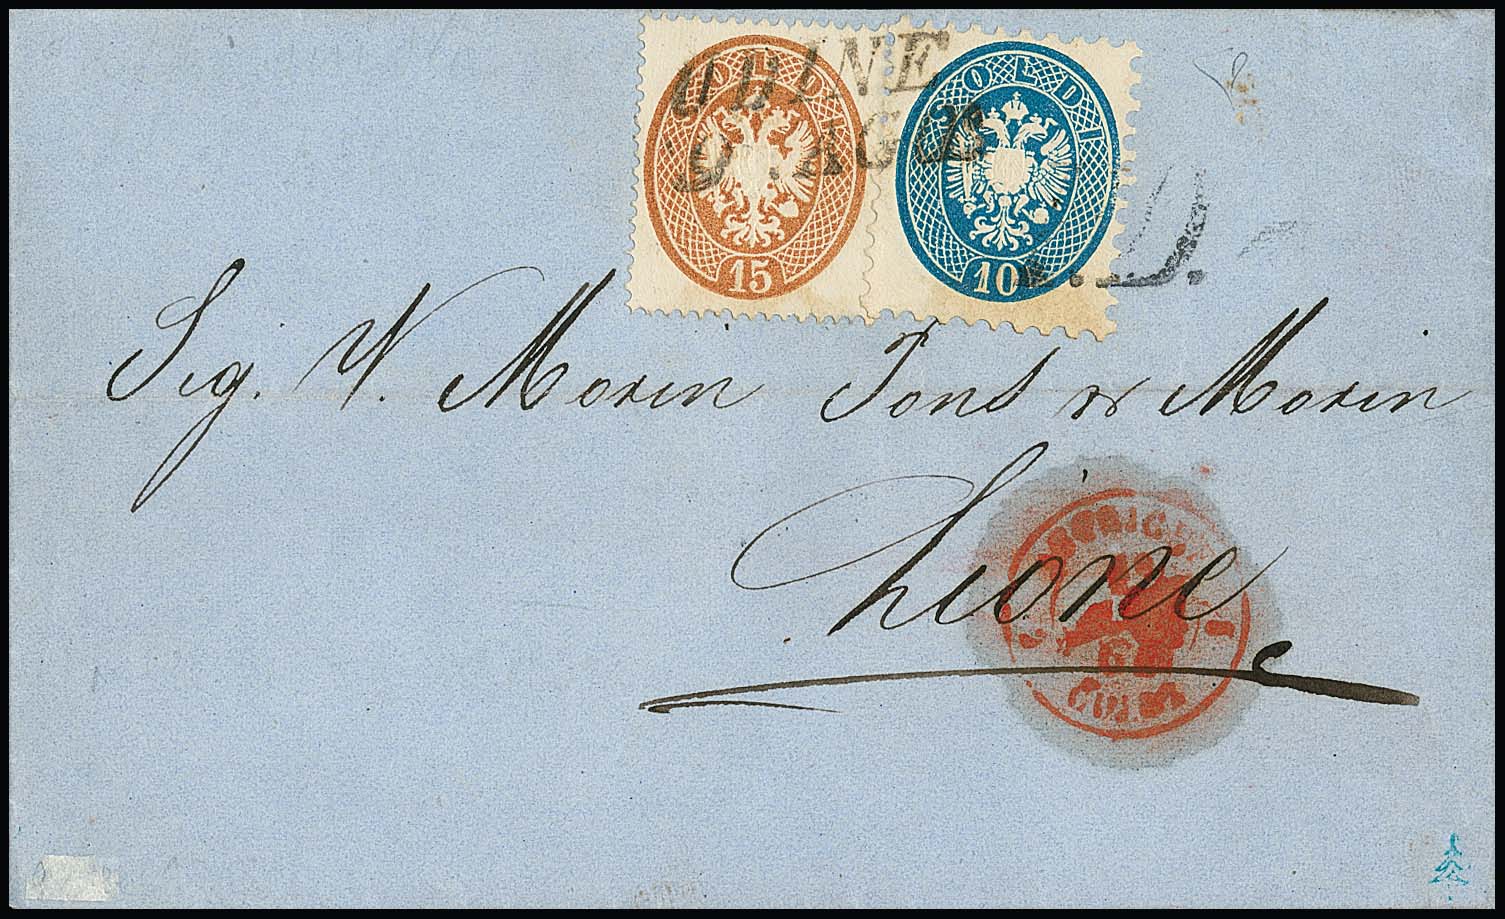 UDINE
9 AGO
SOLDI 15
SOLDI 10
P.D.
Sig. V. Morin Pons & Morin
Lione